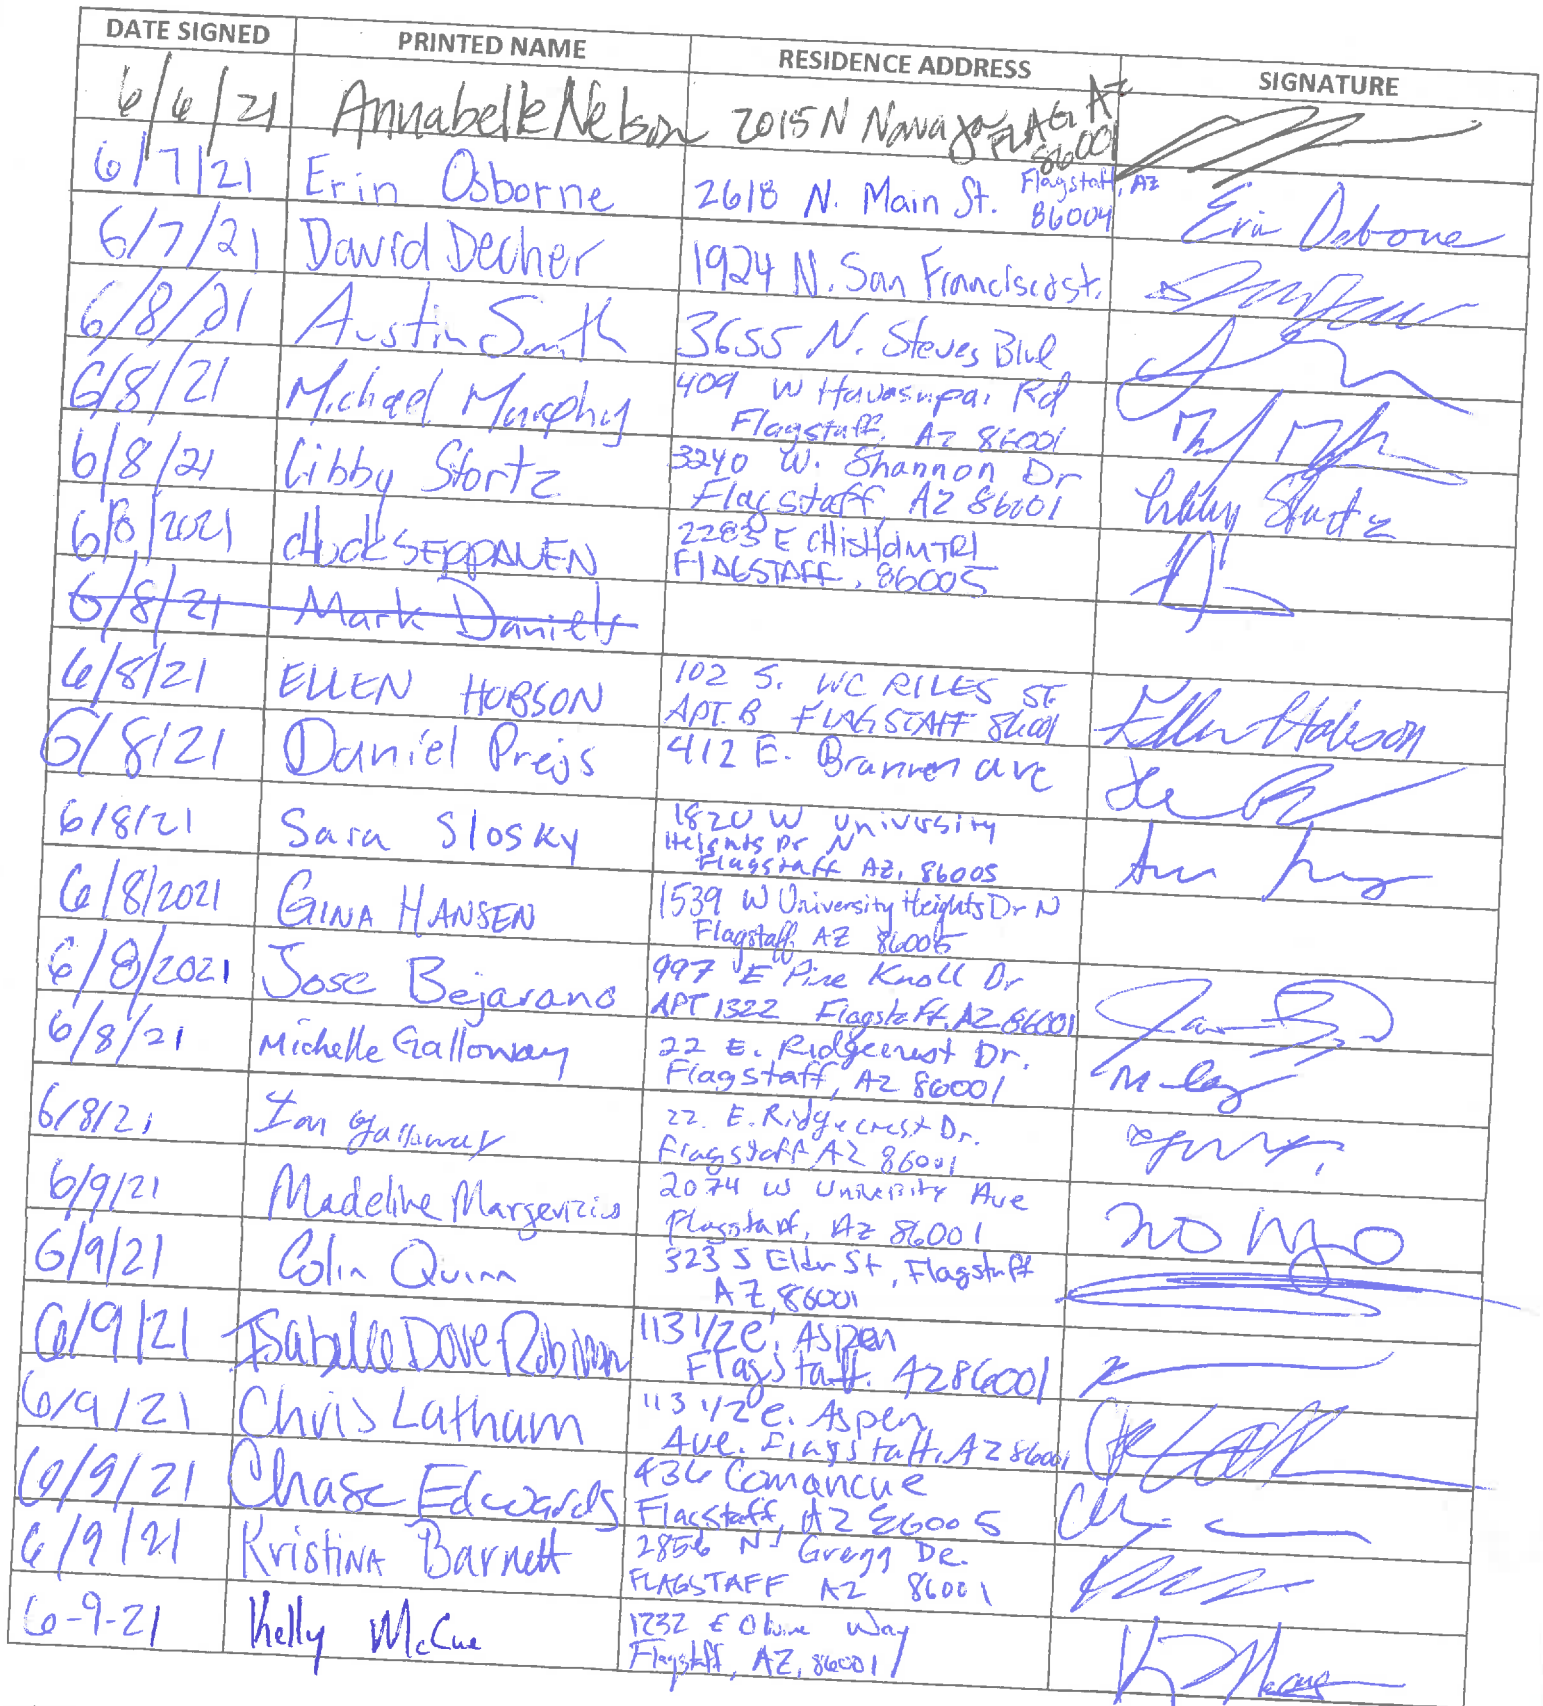 DATE SIGNED PRINTED NAME RESIDENCE ADDRESS SIGNATURE
6/6/21 Annabelle Nelson 2015 N Navajo FLAG AZ
86001
6/7/21 Erin Osborne 2618 N. Main St. Flagstaff, AZ
86004 Erin Osborne
6/7/21 David Decher 1924 N. San Francisco St.
6/8/21 Austin Smith 3655 N. Steves Blvd
6/8/21 Michael Murphy 409 W Havasupai Rd
Flagstaff, AZ 86001
6/8/21 Libby Stortz 3240 W. Shannon Dr
Flagstaff, AZ 86001 Libby Stortz
6/8/2021 CHUCK SEPPANEN 2283 E
FLAGSTAFF, 86005
6/8/21 Mark Daniels
6/8/21 ELLEN HOBSON 102 S. WC RILES ST.
APT. B FLAGSTAFF 86001 Ellen Hobson
6/8/21 Daniel 412 E. Brannen ave
6/8/21 Sara Slosky 1820 W University
Heights Dr N
Flagstaff AZ, 86005
6/8/2021 GINA HANSEN 1539 W University Heights Dr N
Flagstaff, AZ 86005
6/8/2021 Jose Bejarano 997 E Pine Knoll Dr
APT 1322 Flagstaff, AZ 86001
6/8/21 Michelle Galloway 22 E. Ridgecrest Dr.
Flagstaff, AZ 86001
6/8/21 Ian Galloway 22. E. Ridgecrest Dr.
Flagstaff AZ 86001
6/9/21 Madeline 2074 W University Ave
Flagstaff, AZ 86001
6/9/21 Colin Quinn 323 S Elden St, Flagstaff
AZ, 86001
6/9/21 Isabelle Dove Robinson 113 1/2 e. Aspen
Flagstaff. AZ 86001
6/9/21 Chris Latham 113 1/2 e. Aspen
Ave. Flagstaff, AZ 86001
6/9/21 Chase Edwards 436 Comanche
Flagstaff, AZ 86005
6/9/21 Kristina Barnett 2856 N Gregg Dr.
FLAGSTAFF AZ 86001
6-9-21 Kelly McCue 1232 E Way
Flagstaff, AZ, 86001